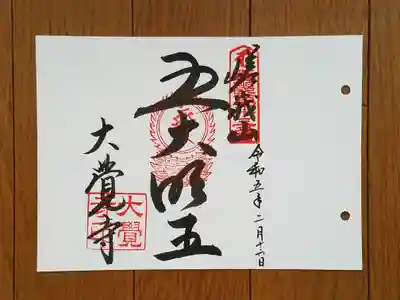 嵯峨山
令和五年二月十六日
五大明王
大覺寺
大覺寺